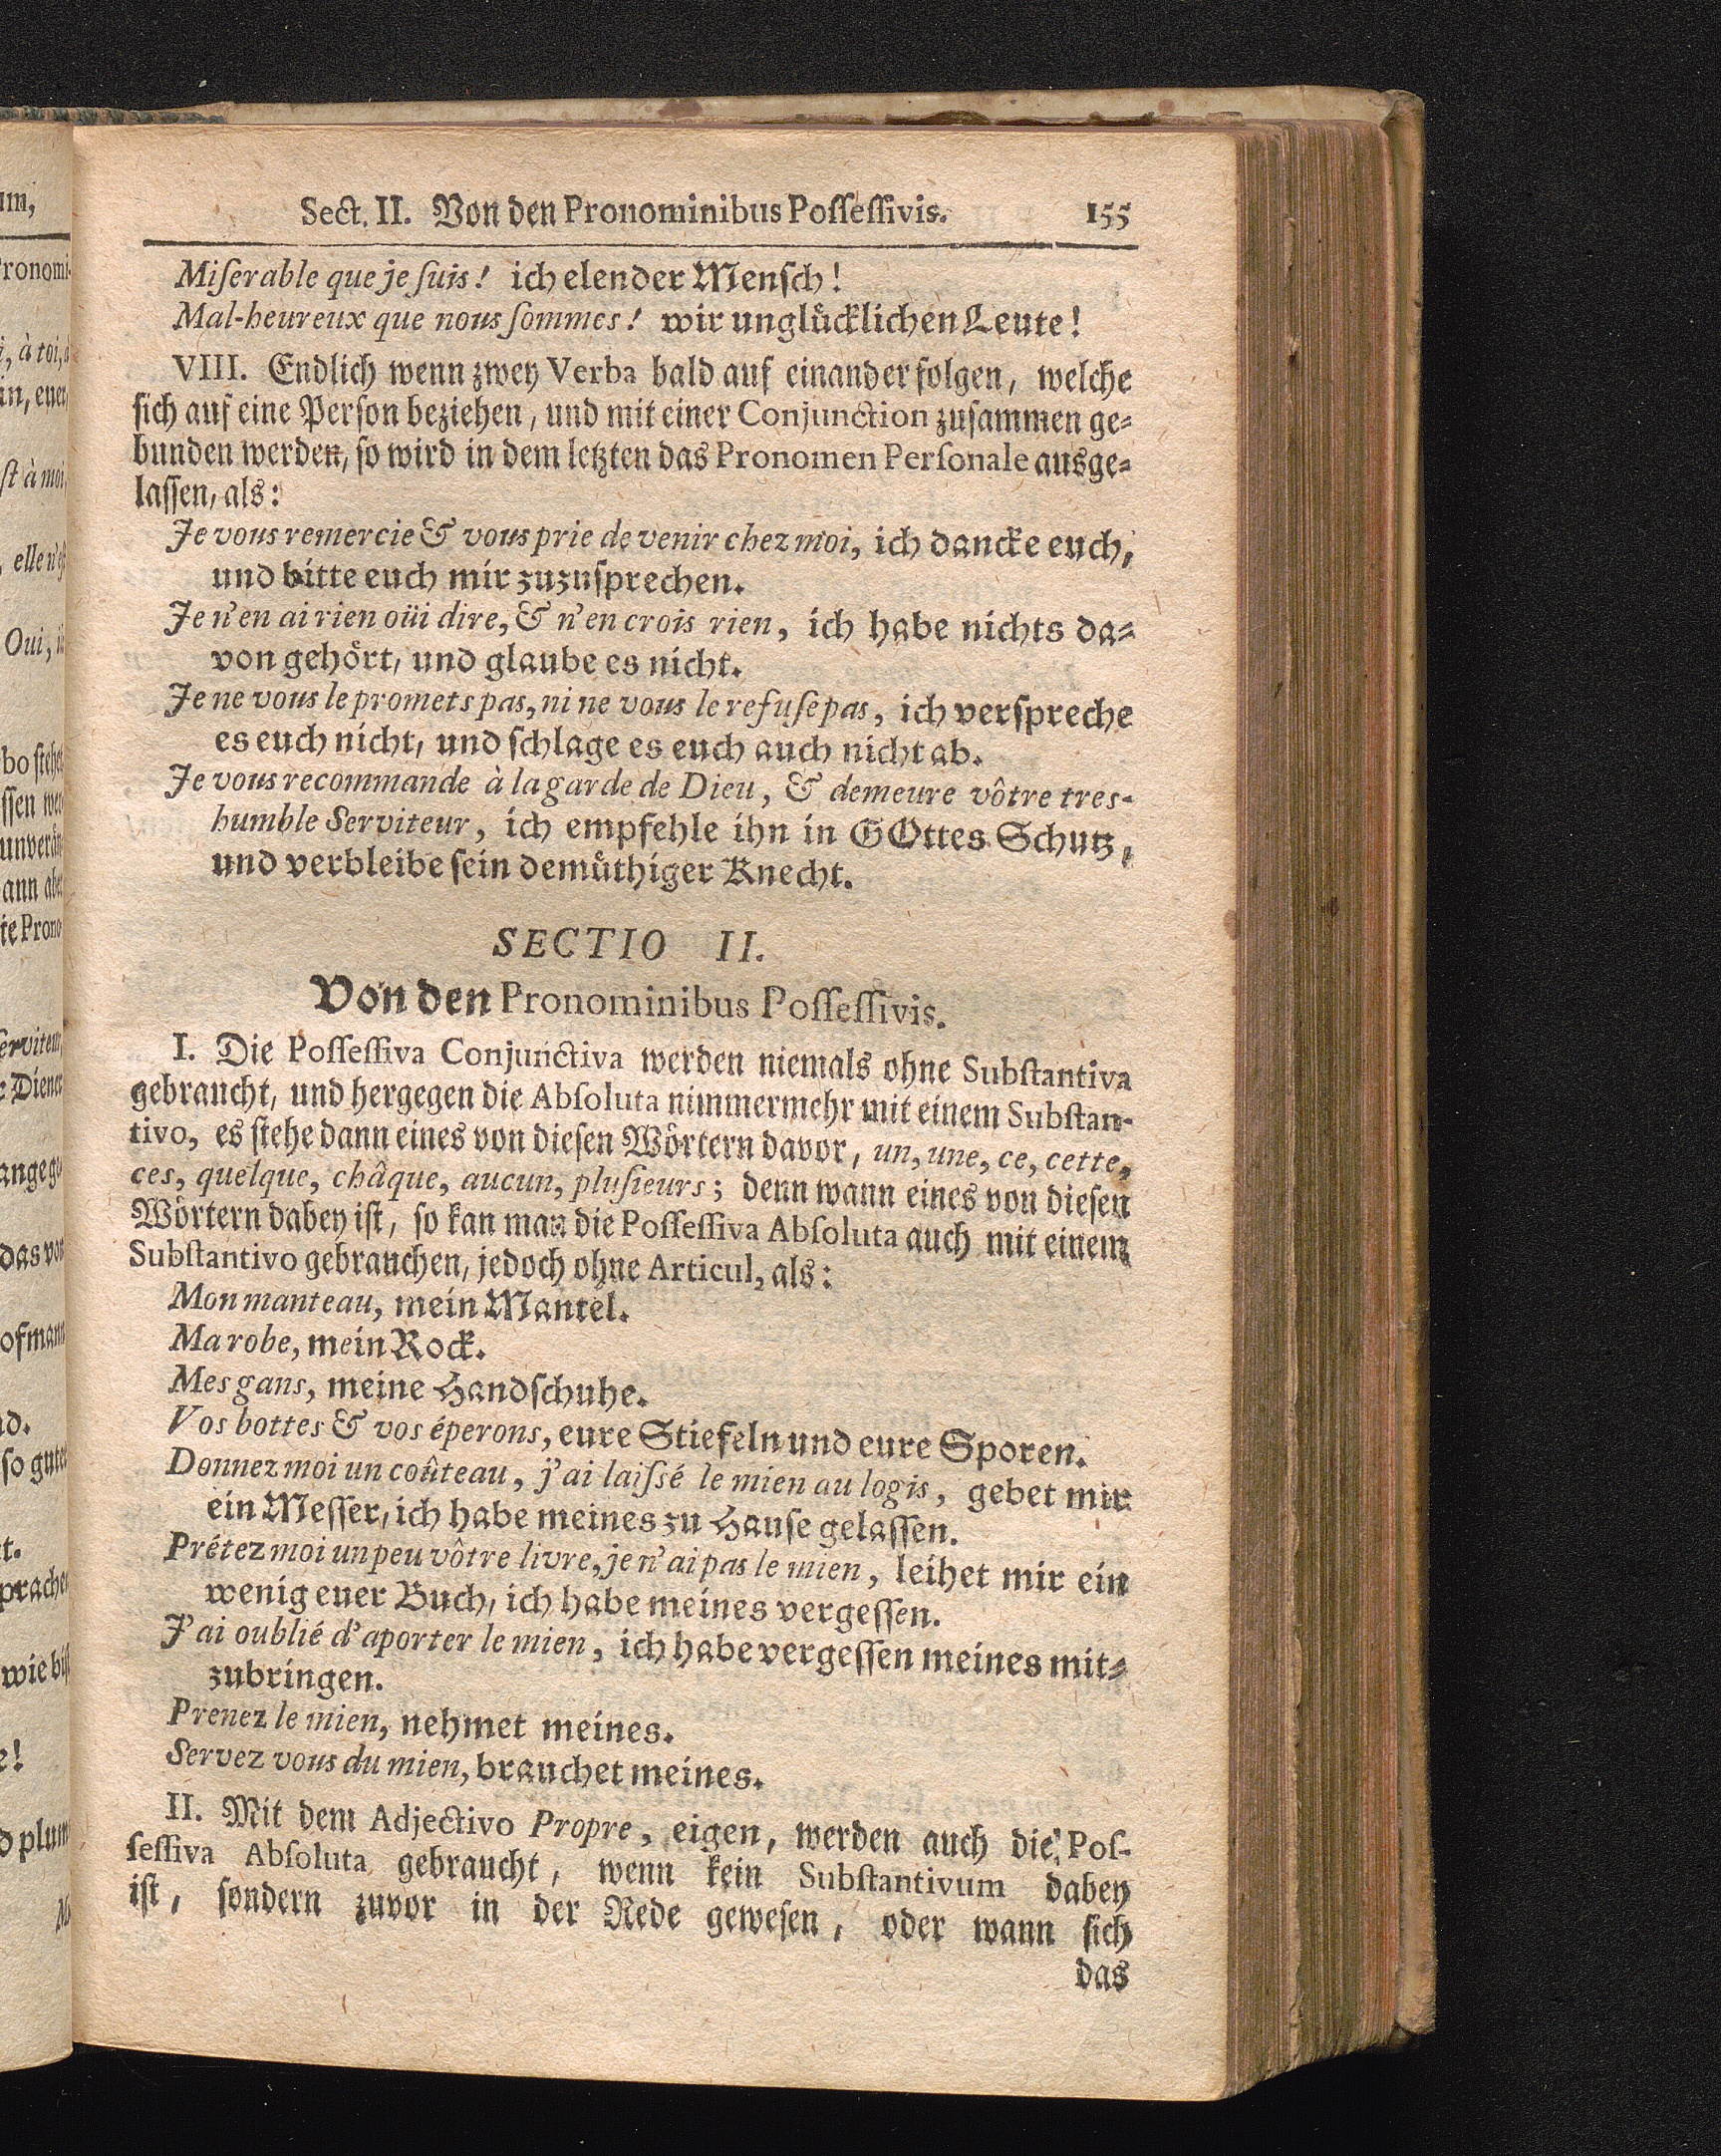 Sect. II. Von den Pronominibus Poſſeſſivis. 155
Miſerable que je ſuis! ich elender Menſch!
Mal-heureux que nous ſommes! wir unglücklichen Leute!
VIII. Endlich wenn zwey Verba bald auf einander folgen, welche
ſich auf eine Perſon beziehen, und mit einer Conjunction zuſammen ge-
bunden werden, ſo wird in dem letzten das Pronomen Perſonale ausge-
laſſen, als:
Je vous remercie & vous prie de venir chez moi, ich dancke euch,
und bitte euch mir zuzuſprechen.
Je n'en ai rien oüi dire, & n'en crois rien, ich habe nichts da-
von gehört, und glaube es nicht.
Je ne vous le promets pas, ni ne vous le refuſe pas, ich verſpreche
es euch nicht, und ſchlage es euch auch nicht ab.
Je vous recommande à la garde de Dieu, & demeure vôtre tres-
humble Serviteur, ich empfehle ihn in GOttes Schutz,
und verbleibe ſein demüthiger Knecht.
SECTIO II.
Von den Pronominibus Poſſeſſivis.
I. Die Poſſeſſiva Conjunctiva werden niemals ohne Subſtantiva
gebraucht, und hergegen die Abſoluta nimmermehr mit einem Subſtan-
tivo, es ſtehe dann eines von dieſen Wörtern davor, un, une, ce, cette,
ces, quelque, châque, aucun, pluſieurs; denn wann eines von dieſen
Wörtern dabey iſt, ſo kan man die Poſſeſſiva Abſoluta auch mit einem
Subſtantivo gebrauchen, jedoch ohne Articul, als:
Mon manteau, mein Mantel.
Ma robe, mein Rock.
Mes gans, meine Handſchuhe.
Vos bottes & vos éperons, eure Stiefeln und eure Sporen.
Donnez moi un coûteau, j'ai laiſsé le mien au logis, gebet mir
ein Meſſer, ich habe meines zu Hauſe gelaſſen.
Prétez moi un peu vôtre livre, je n'ai pas le mien, leihet mir ein
wenig euer Buch, ich habe meines vergeſſen.
J'ai oublié d'aporter le mien, ich habe vergeſſen meines mit-
zubringen.
Prenez le mien, nehmet meines.
Servez vous du mien, brauchet meines.
II. Mit dem Adjectivo Propre, eigen, werden auch die Poſ-
ſeſſiva Abſoluta gebraucht, wenn kein Subſtantivum dabey
iſt, ſondern zuvor in der Rede geweſen, oder wann ſich
das